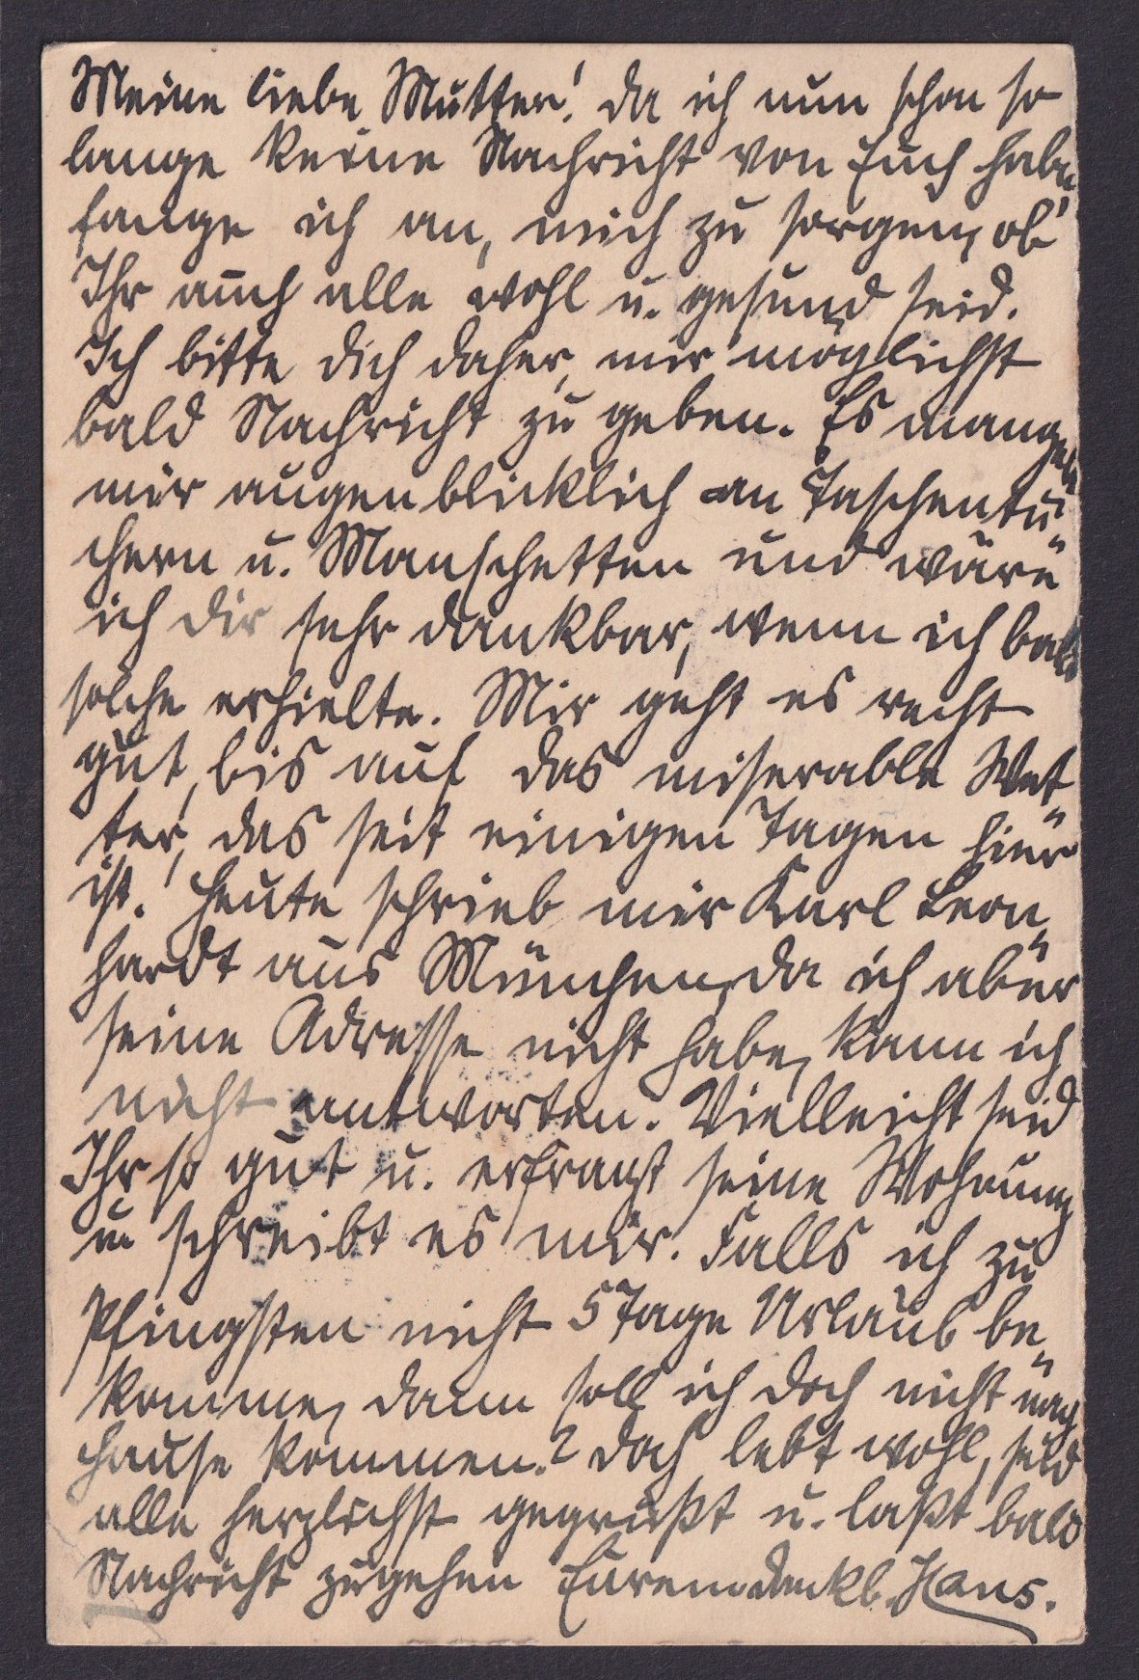 Meine liebe Mutter! Da ich nun schon so
lange keine Nachricht von Euch habe,
fange ich an, mich zu sorgen, ob
Ihr auch alle wohl u. gesund seid.
Ich bitte Dich daher, mir möglichst
bald Nachricht zu geben. Es mangeln
mir augenblicklich an Taschentü-
chern u. Manschetten und wäre
ich Dir sehr dankbar, wenn ich bald
solche erhielte. Mir geht es recht
gut, bis auf das miserable Wet-
ter, das seit einigen Tagen hier
ist. Heute schrieb mir Karl Leon-
hardt aus München, da ich aber
seine Adresse nicht habe, kann ich
nicht antworten. Vielleicht seid
Ihr so gut u. erfragt seine Wohnung
u. schreibt es mir. Falls ich zu
Pfingsten nicht 5 Tage Urlaub be-
komme, dann soll ich doch nicht nach
Hause kommen? Doch lebt wohl, seid
alle herzlichst gegrüßt u. laßt bald
Nachricht zugehen Eurem dankb. Hans.